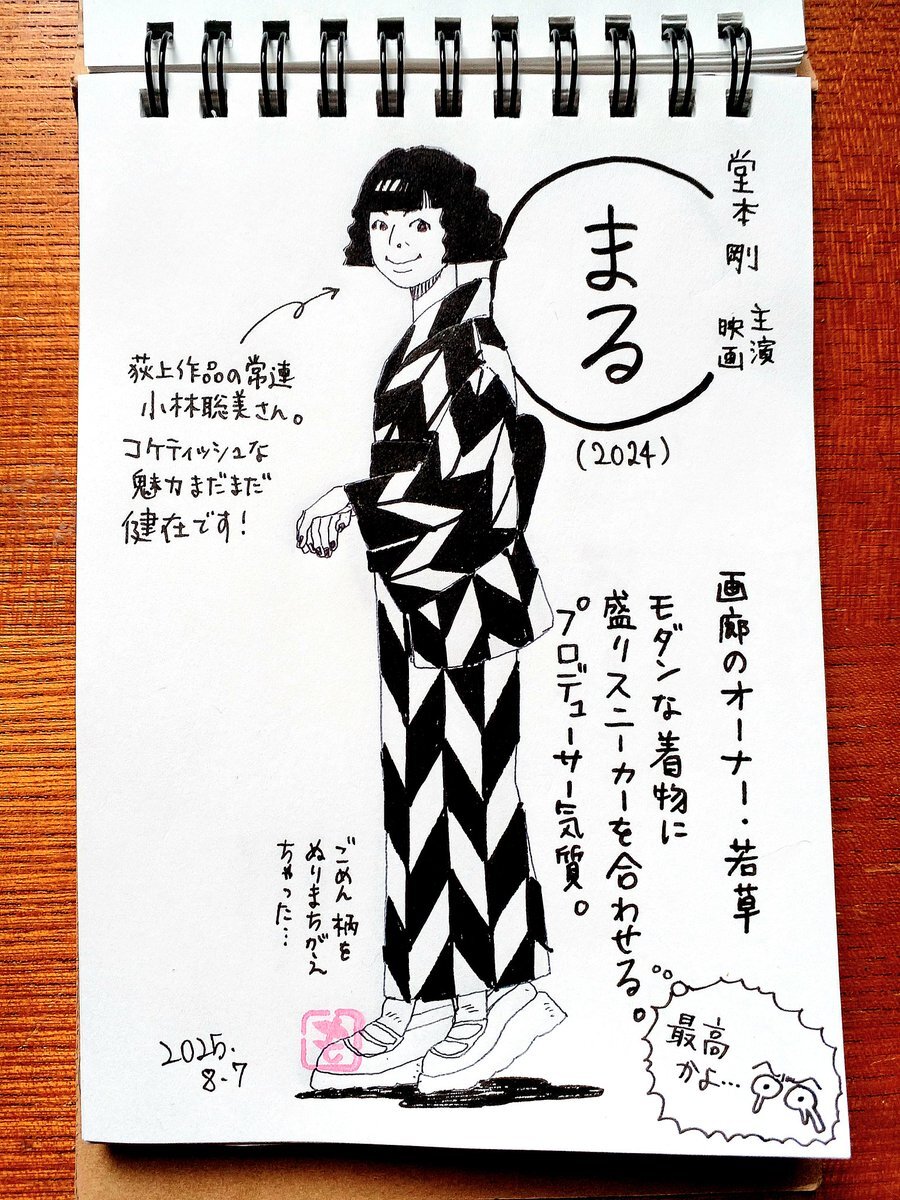 堂本 剛
主演
映画
まる
(2024)
荻上作品の常連
小林聡美さん。
コケティッシュな
魅力まだまだ
健在です!
画廊のオーナー・若草
モダンな着物に
盛りスニーカーを合わせる。
プロデューサー気質。
最高
かよ…
ごめん 柄を
ぬりまちがえ
ちゃった…
2025.
8.7